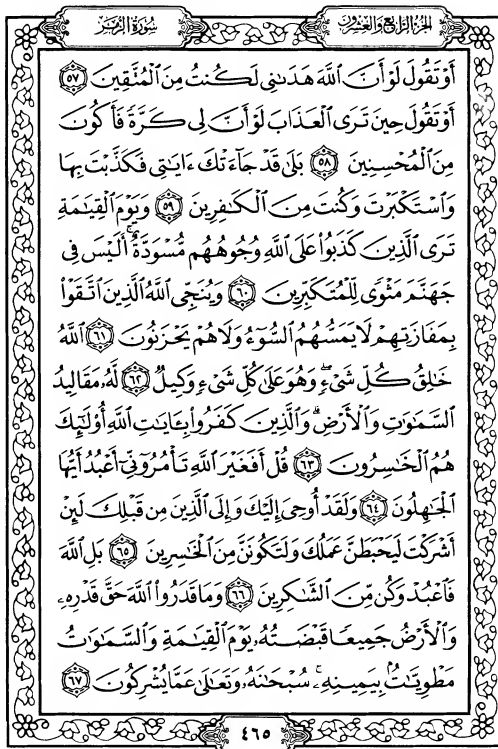 سورة الزمر
الجزء الرابع والعشرون
أَوْ تَقُولَ لَوْ أَنَّ ٱللَّهَ هَدَىٰنِى لَكُنتُ مِنَ ٱلْمُتَّقِينَ ٥٧
أَوْ تَقُولَ حِينَ تَرَى ٱلْعَذَابَ لَوْ أَنَّ لِى كَرَّةً فَأَكُونَ
مِنَ ٱلْمُحْسِنِينَ ٥٨ بَلَىٰ قَدْ جَآءَتْكَ ءَايَـٰتِى فَكَذَّبْتَ بِهَا
وَٱسْتَكْبَرْتَ وَكُنتَ مِنَ ٱلْكَـٰفِرِينَ ٥٩ وَيَوْمَ ٱلْقِيَـٰمَةِ
تَرَى ٱلَّذِينَ كَذَبُوا۟ عَلَى ٱللَّهِ وُجُوهُهُم مُّسْوَدَّةٌ ۚ أَلَيْسَ فِى
جَهَنَّمَ مَثْوًى لِّلْمُتَكَبِّرِينَ ٦٠ وَيُنَجِّى ٱللَّهُ ٱلَّذِينَ ٱتَّقَوْا۟
بِمَفَازَتِهِمْ لَا يَمَسُّهُمُ ٱلسُّوٓءُ وَلَا هُمْ يَحْزَنُونَ ٦١ ٱللَّهُ
خَـٰلِقُ كُلِّ شَىْءٍ ۖ وَهُوَ عَلَىٰ كُلِّ شَىْءٍ وَكِيلٌ ٦٢ لَّهُۥ مَقَالِيدُ
ٱلسَّمَـٰوَٰتِ وَٱلْأَرْضِ ۗ وَٱلَّذِينَ كَفَرُوا۟ بِـَٔايَـٰتِ ٱللَّهِ أُو۟لَـٰٓئِكَ
هُمُ ٱلْخَـٰسِرُونَ ٦٣ قُلْ أَفَغَيْرَ ٱللَّهِ تَأْمُرُوٓنِّىٓ أَعْبُدُ أَيُّهَا
ٱلْجَـٰهِلُونَ ٦٤ وَلَقَدْ أُوحِىَ إِلَيْكَ وَإِلَى ٱلَّذِينَ مِن قَبْلِكَ لَئِنْ
أَشْرَكْتَ لَيَحْبَطَنَّ عَمَلُكَ وَلَتَكُونَنَّ مِنَ ٱلْخَـٰسِرِينَ ٦٥ بَلِ ٱللَّهَ
فَٱعْبُدْ وَكُن مِّنَ ٱلشَّـٰكِرِينَ ٦٦ وَمَا قَدَرُوا۟ ٱللَّهَ حَقَّ قَدْرِهِۦ
وَٱلْأَرْضُ جَمِيعًا قَبْضَتُهُۥ يَوْمَ ٱلْقِيَـٰمَةِ وَٱلسَّمَـٰوَٰتُ
مَطْوِيَّـٰتٌۢ بِيَمِينِهِۦ ۚ سُبْحَـٰنَهُۥ وَتَعَـٰلَىٰ عَمَّا يُشْرِكُونَ ٦٧
٤٦٥